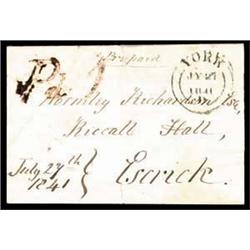 Prepaid
Pd 1
YORK
JY 27
1841
Wormley Richardson Esq,
Riccall Hall,
July 27th
1841
Escrick.